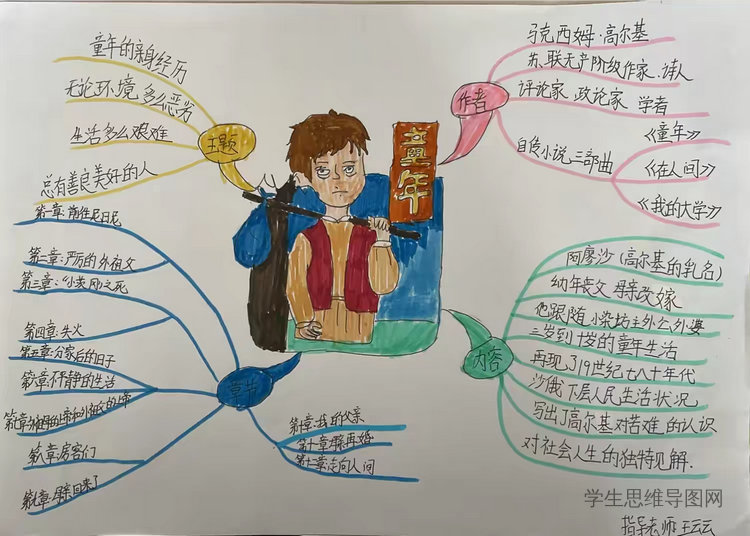 童年的亲身经历
无论环境多么恶劣
生活多么艰难
总有善良美好的人
主题
童年
作者
马克西姆·高尔基
苏联无产阶级作家、诗人
评论家 政论家 学者
自传小说三部曲
《童年》
《在人间》
《我的大学》
第一章:前往尼日尼
第二章:严厉的外祖父
第三章:"小茨冈"之死
第四章:失火
第五章:分家后的日子
第六章:不静的生活
第八章:房客们
第九章:母亲回来了
章节
第十章:我的父亲
第十一章:母亲再婚
第十二章:走向人间
内容
阿廖沙(高尔基的乳名)
幼年丧父 母亲改嫁
他跟随小染坊主外公外婆
三岁到十岁的童年生活
再现了19世纪七八十年代
沙俄下层人民生活状况
写出了高尔基对苦难的认识
对社会人生的独特见解.
学生思维导图网
指导老师 王云云